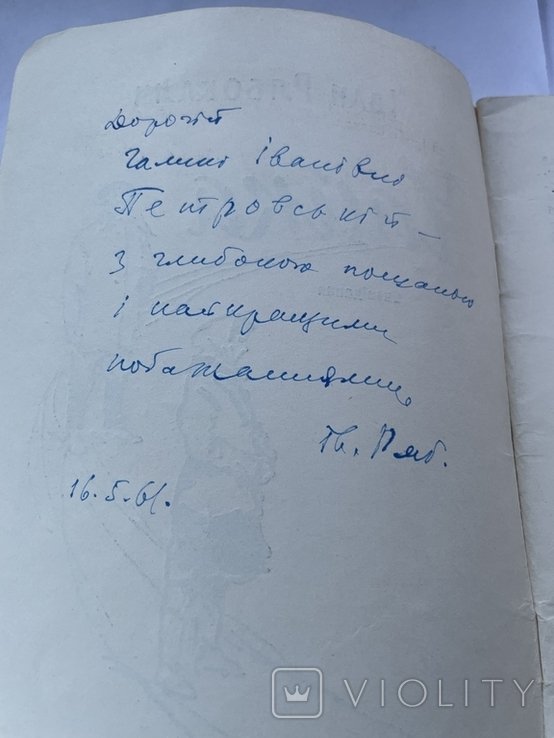 Дорогій
Галині Іванівні
Петровській —
З глибокою пошаною
і найкращими
побажаннями,
Ів. Ряб.
16.5.61.
VIOLITY